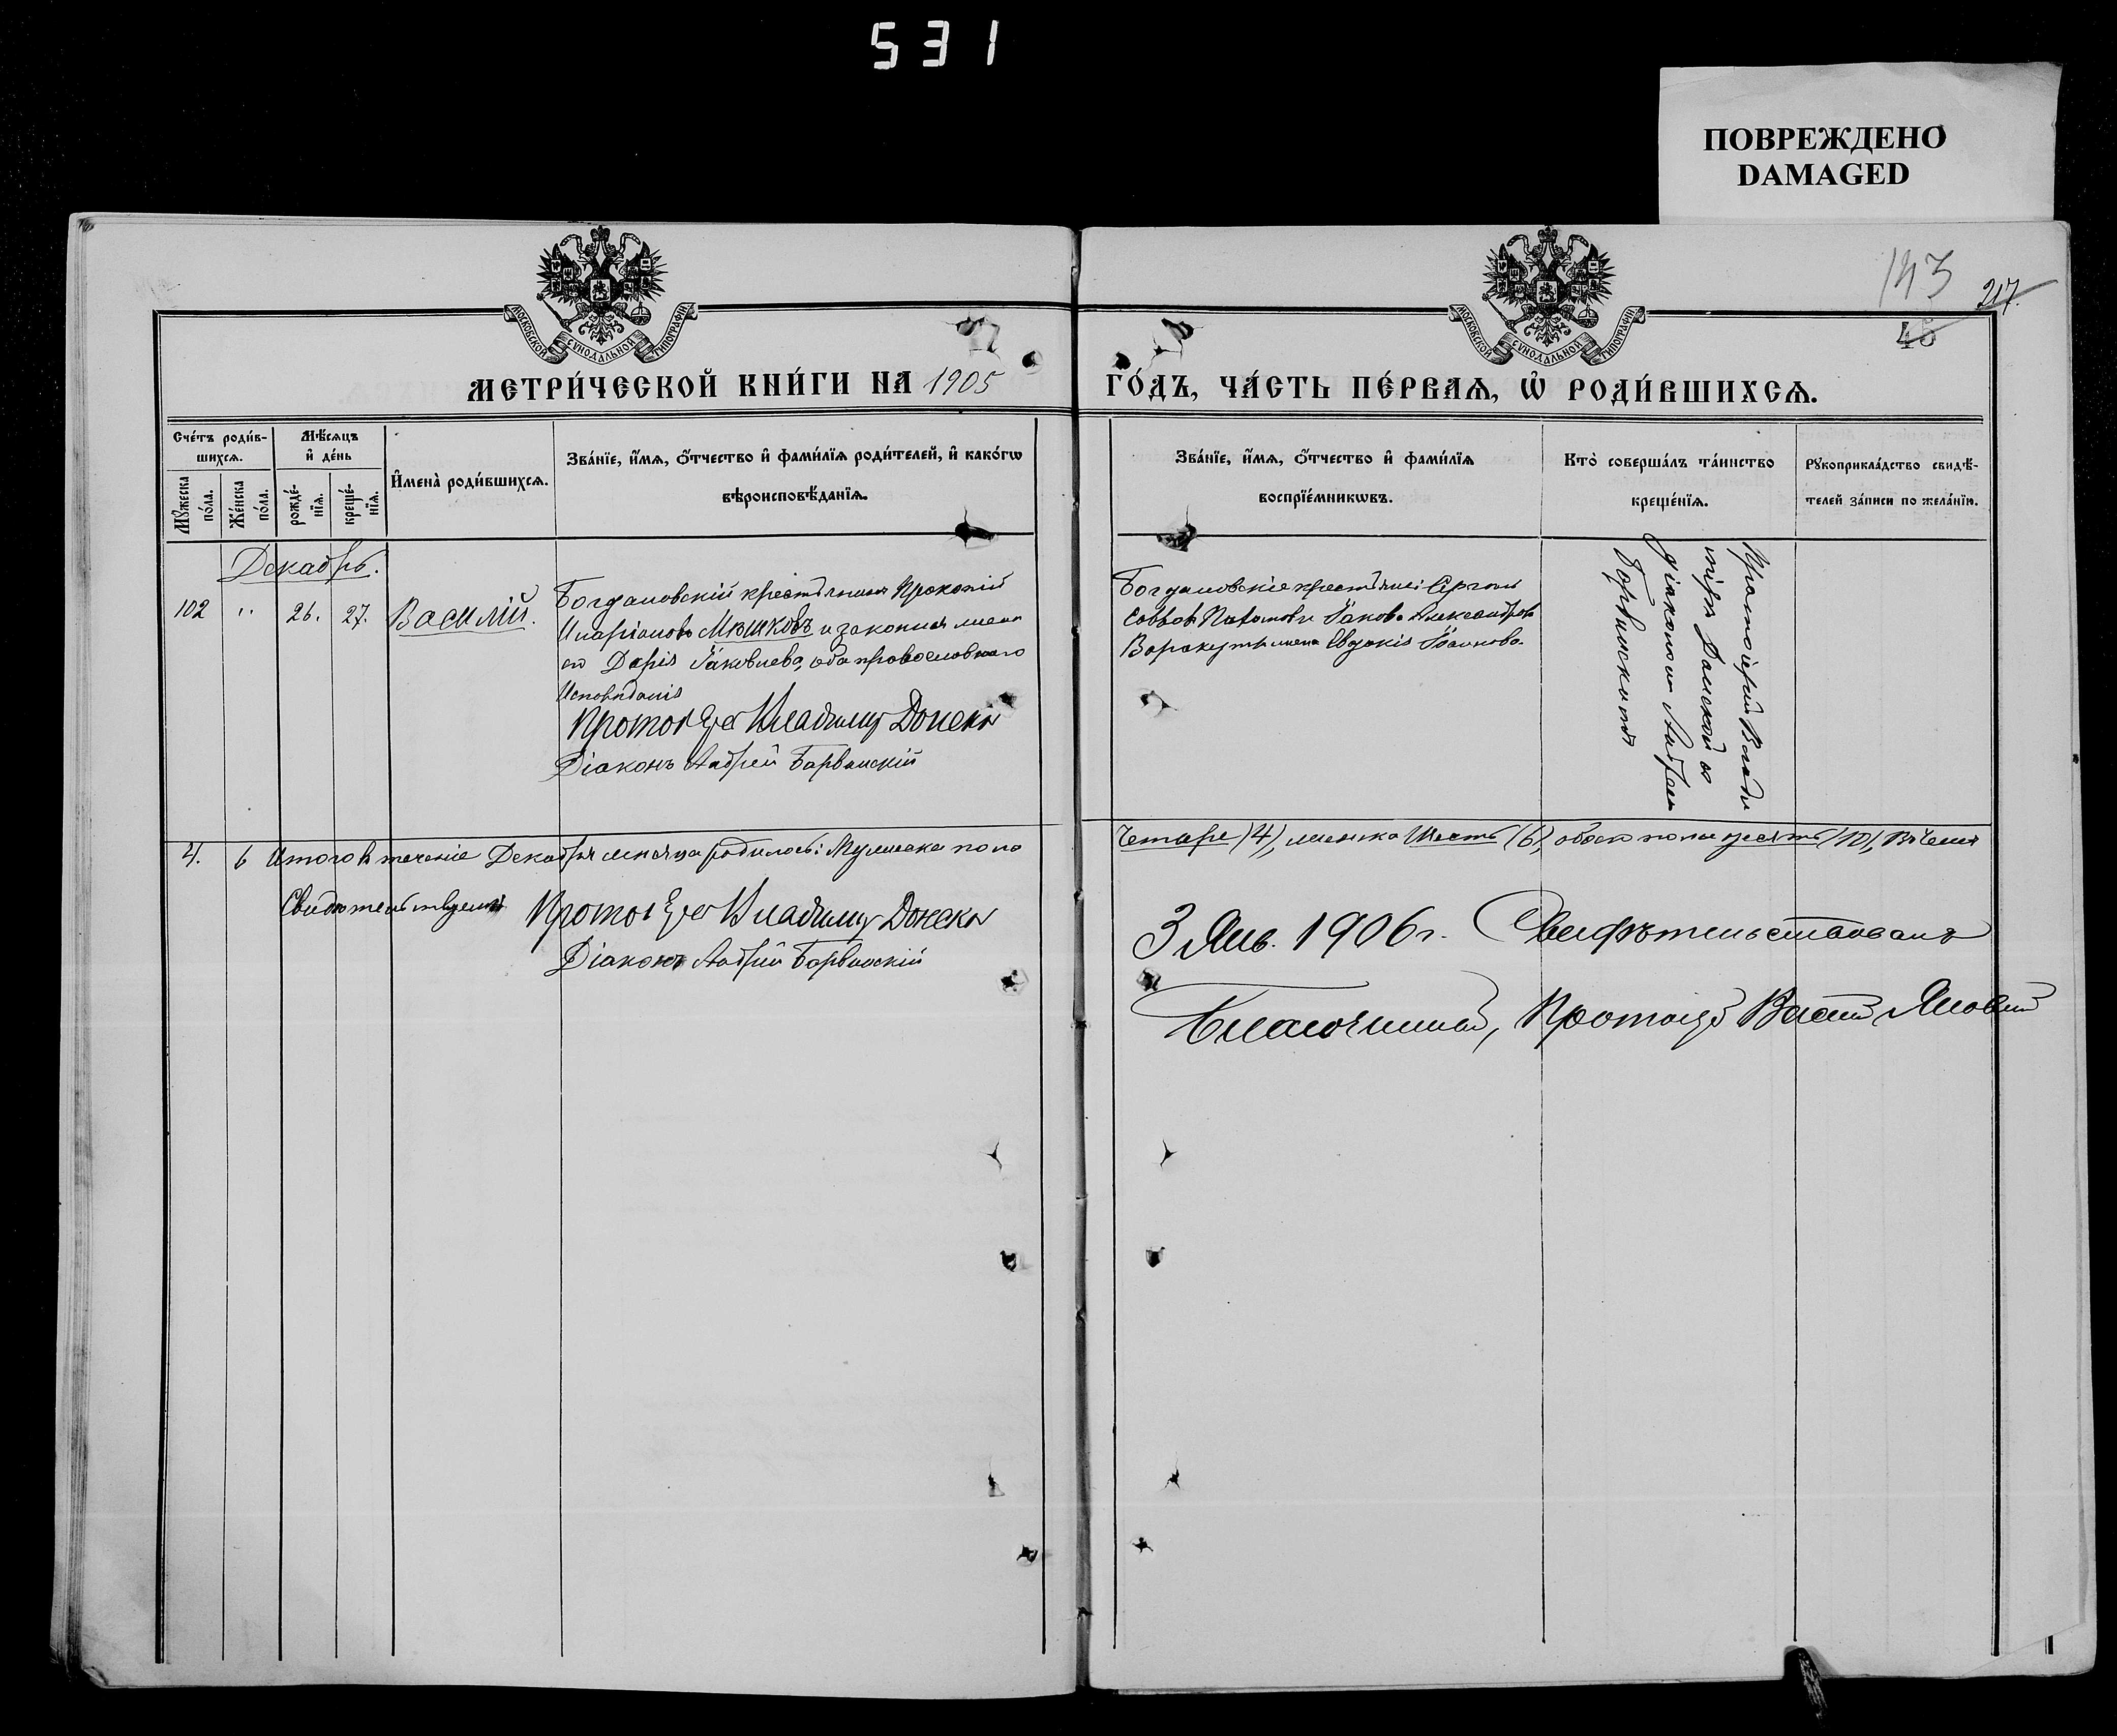 531
ПОВРЕЖДЕНО
DAMAGED
143
217.
46
МОСКОВСКОЙ СѴНОДАЛЬНОЙ ТИПОГРАФІИ
МОСКОВСКОЙ СѴНОДАЛЬНОЙ ТИПОГРАФІИ
МЕТРИ́ЧЕСКОЙ КНИ́ГИ НА 1905
ГО́ДЪ, ЧА́СТЬ ПЕ́РВАѦ, Ѡ҆ РОДИ́ВШИХСѦ.
Сче́тъ роди́в-
шихсѧ.
Мꙋ́жеска по́ла.
Же́нска по́ла.
Мѣ́сѧцъ
и҆ де́нь
рожде́-
нїѧ.
креще́-
нїѧ.
И҆мена̀ роди́вшихсѧ.
Зва́нїе, и҆́мѧ, ѻ҆́тчество и҆ фами́лїѧ роди́телей, и҆ како́гѡ
вѣроисповѣ́данїѧ.
Зва́нїе, и҆́мѧ, ѻ҆́тчество и҆ фами́лїѧ
воспрїе́мникѡвъ.
Кто̀ соверша́лъ та́инство
креще́нїѧ.
Рꙋкоприкла́дство свидѣ́-
телей за́писи по жела́нїю.
Декабрь.
102 " 26. 27. Василій.
Богдановскій крестьянинъ Прокопій
Иларіоновъ Мѣшковъ и законная жена
его Дарія Іаковлева, оба православнаго
Исповѣданія
Протоіерей Владимір Донски
Діаконъ Андрей Барвинскій
Богдановскіе крестьяне: Сергей
Саввовъ Іаковъ Александровъ
жена Евдокія Іоаннова.
Протоіерей Влади
міръ Донской съ
діакономъ Андреем
Барвинскимъ
4. 6 Итого в теченіе Декабря месяца родилось: Мужеска пола
Четыре (4), женска Шесть (6), обоего пола десять (10),
Свидетельствуем Протоіерей Владимір Донски
Діаконъ Андрей Барвинскій
3 Янв. 1906 г. Свидѣтельствовалъ
Благочинный, Протоіер Васил